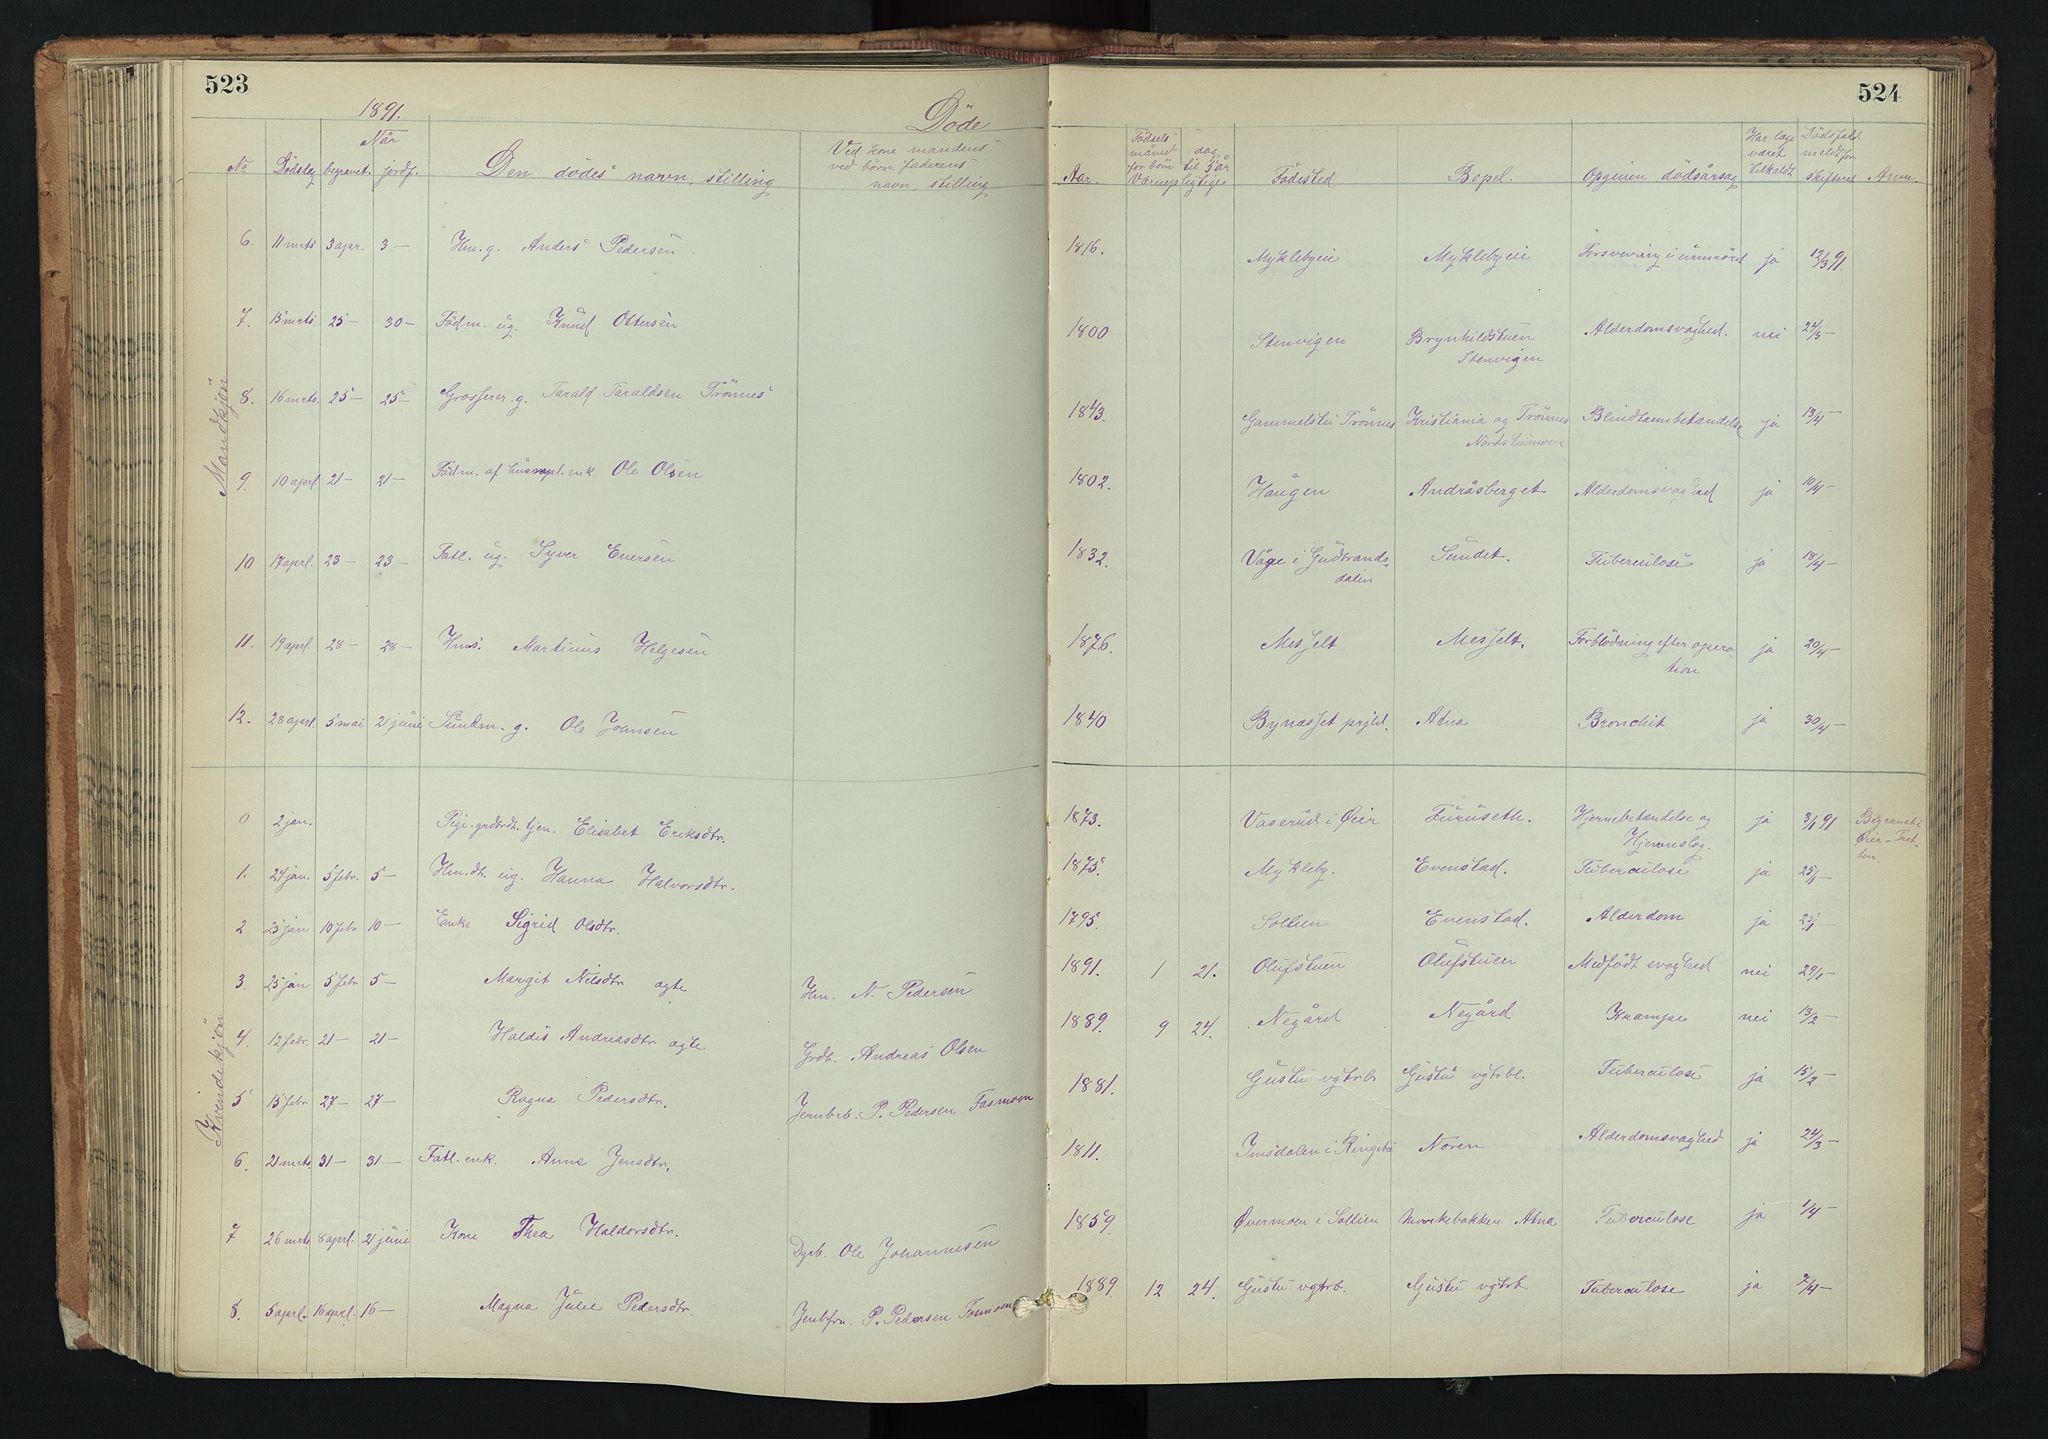 523
1891.
Döde
524
Når
No Dödsdag begravet. jordf. Den dödes navn, stilling
Ved kone mandens
ved børn faderens
navn, stilling
Aar.
Födsels
måned dag
for børn til 5 år
Værnepligtige
Födested Bopel. Opgiven dödsårsag
Har læge
været
tilkaldt
Dödsfald
meldt for
skifteret
Anm.
Mandkjön
6. 11 mrts 3 apr. 3 — Hm. g. Anders Pedersen 1816. Myklebyeie Myklebyeie Forsvering i urinröret ja 12/3 91.
7. 15 mrts 25 — 30 — Födm. ug. Knud Ottersen 1800 Stenvigen Brynhildstuen Alderdomsvaghed. nei 24/3 —
Stenvigen
8. 16 mrts. 25 — 25 — Grosserer. g. Tarald Taraldsen Trönnes 1843. Gammelstu Trönnes Kristiania og Trönnes Blindtarmbetændelse ja 13/4 —
9. 10 aprl 21 — 21 — Födm. af husmpl. enk. Ole Olsen 1802. Haugen Andråsberget Alderdomsvaghed ja 10/4 —
10 17 aprl. 23 — 23 — Fatl. ug. Syver Eversen 1832. Våge i Gudbrands- Sundet. Tuberculose ja 18/4 —
dalen
11. 19 aprl. 28 — 28 — Hms. Martinus Helgesen 1876. Messelt Messelt. Forblödning efter opera- ja 20/4 —
tion
12. 28 aprl 5 mai 21 juni Sundm. g. Ole Jonsen 1840 Bynæsset prjld. Atna Bronchit ja 30/4 —
Kvindekjön
0 2 jan. Pige. grdbrdt. tjen. Elisabet Eriksdtr. 1873. Vaserud i Øier Furuseth. Hjernebetændelse og ja 3/1 91 Begravet i
Hjerneslag. Øier — Tret-
ten.
1. 24 jan. 5 febr. 5 — Hm. dt. ug. Hanna Halvorsdtr. 1875. Mykleby. Evenstad. Tuberculose ja 25/1
2 23 jan 10 febr 10 — Enke Sigrid Olsdtr. 1795. Sollien Evenstad. Alderdom ja 23/1
3 25 jan 5 febr 5 — Margit Nilsdtr ægte Hm. N. Pedersen 1891. 1 21. Olufstuen Olufstuen Medfödt svaghed nei 29/1 —
4. 12 febr. 21 — 21 — Haldis Andreasdtr ægte Grdb. Andreas Olsen 1889. 9 24. Negård Negård Krampe nei 13/2 —
5 15 febr 27 — 27 — Ragna Pedersdtr. Jernbrb. P. Pedersen Fosmoen 1881. Gustu vgtrb Gustu vgtrbl. Tuberculose ja 15/2 —
6. 21 mrts 31 — 31 — Fatl. enk. Anne Jensdtr. 1811. Imsdalen i Ringebu Noren Alderdomsvaghed ja 24/3 —
7 26 mrts 8 aprl. 21 juni Kone Thea Haldorsdtr. Ole Johannesen 1859. Øvermoen i Sollien Atna Tuberculose ja 1/4 —
8. 5 aprl. 16 aprl. 16 — Magna Julie Pedersdtr. P. Pedersen Fosmoen 1889 12 24. Gustu vgtrb. Gustu vgtrb Tuberculose ja 7/4 —